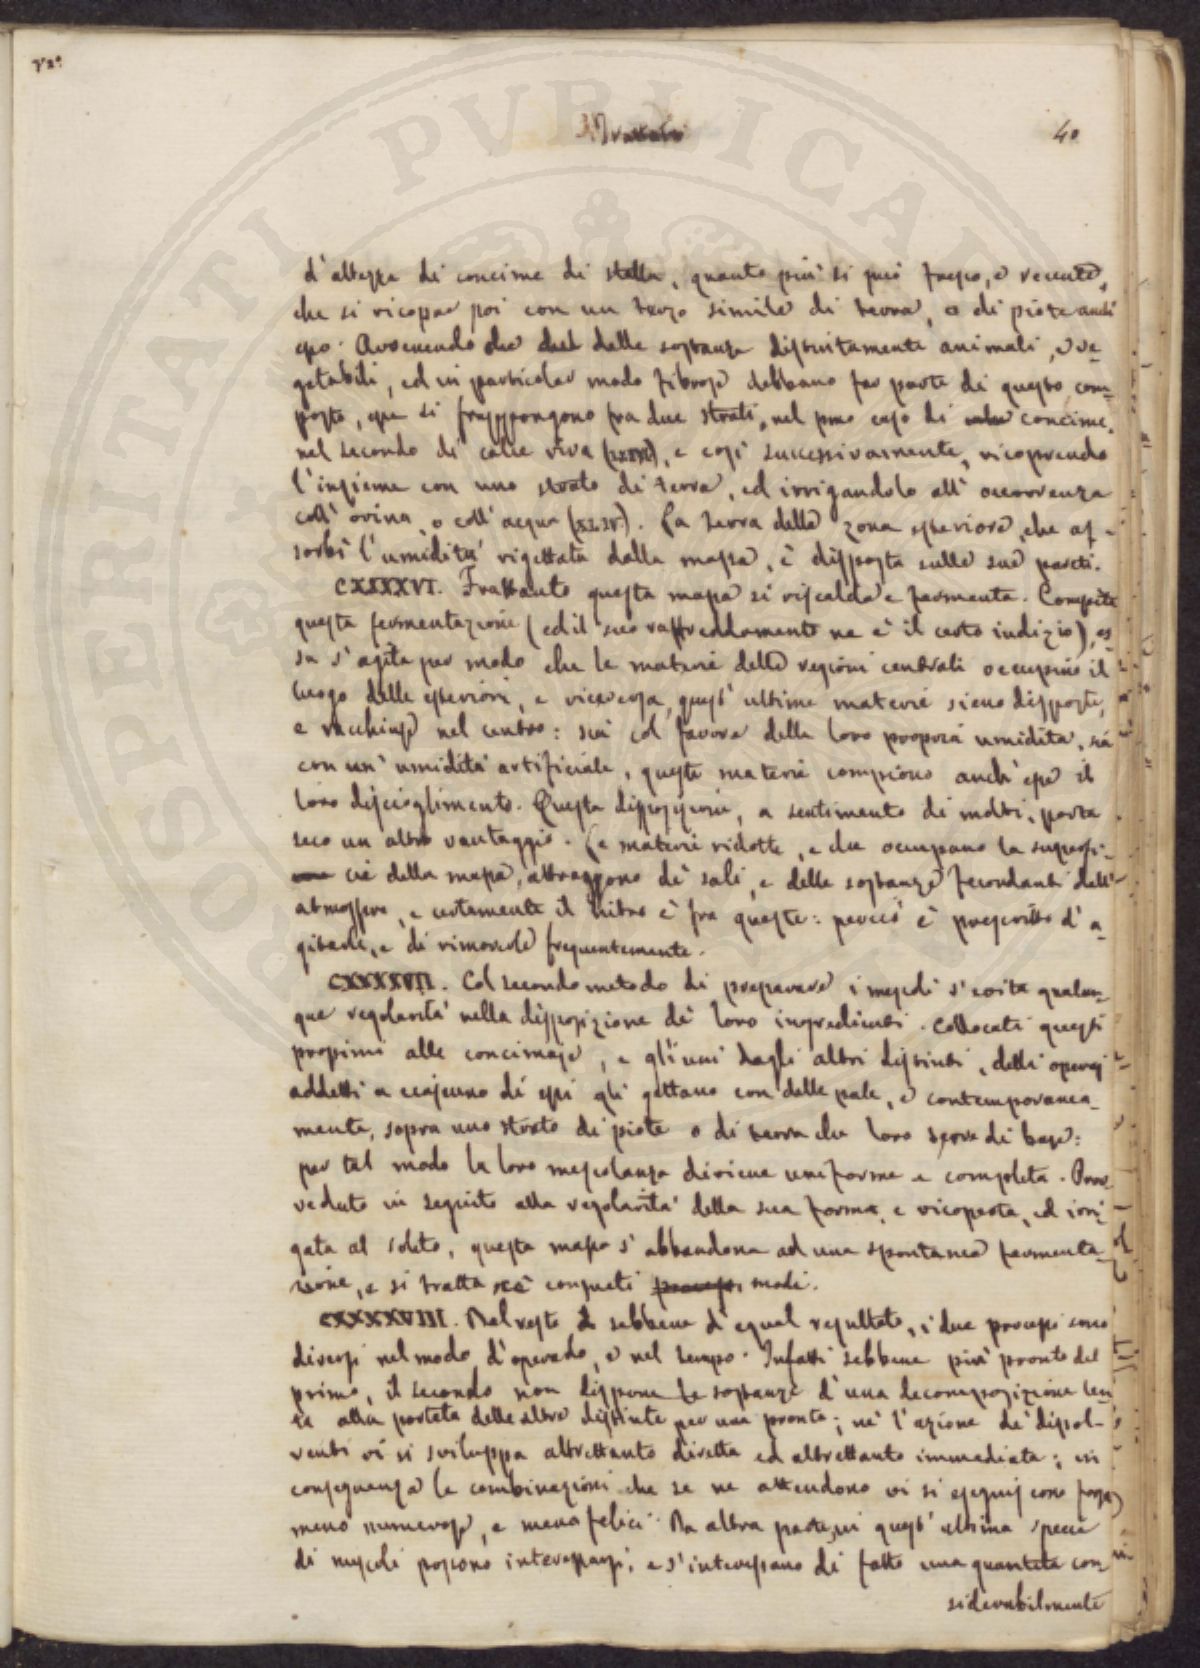 40
d'altezza di concime di stalla, quanto più si può fresco, e recente,
che si ricopre poi con un terzo simile di terra, o di piote anch'
esso. Avvenendo che delle sostanze distintamente animali, e ve-
getabili, ed in particolar modo fibrose debbano far parte di questo com-
posto, esse si frappongono fra due strati, nel pmo caso di concime,
nel secondo di calce viva, e così successivamente, ricoprendo
l'insieme con uno strato di terra, ed irrigandolo all'occorrenza
coll'orina, o coll'acqua (XLIV). La terra della zona esteriore, che as-
sorbì l'umidità rigettata dalla massa, è disposta sulle sue pareti.
CXXXXVI. Frattanto questa massa si riscalda e fermenta. Compita
questa fermentazione (ed il suo raffreddamento ne è il certo indizio), es-
sa s'agita per modo che le materie delle regioni centrali occupino il
luogo delle esteriori, e viceversa, quest'ultime materie sieno disposte,
e racchiuse nel centro: sia col favore della loro propria umidità, sia
con un'umidità artificiale, queste materie compiono anch'esse il
loro discioglimento. Questa disposizione, a sentimento di molti, porta
seco un altro vantaggio. Le materie ridotte, e che occupano la superfi-
cie della massa, attraggono de' sali, e delle sostanze fecondanti dall'
atmosfera, e certamente il nitro è fra queste: perciò è prescritto d'a-
gitarle, e di rimoverle frequentemente.
CXXXXVII. Col secondo metodo di preparare i mescoli s'evita qualun-
que regolarità nella disposizione de' loro ingredienti. Collocati questi
prossimi alle concimaje, e gli uni dagli altri distinti, delli operaj
addetti a ciascuno di essi gli gettano con delle pale, e contemporanea-
mente, sopra uno strato di piote o di terra che loro serve di base:
per tal modo la loro mescolanza diviene uniforme e completa. Prov-
veduto in seguito alla regolarità della sua forma, e ricoperta, ed irri-
gata al solito, questa massa s'abbandona ad una spontanea fermenta-
zione, e si tratta ne' consueti modi.
CXXXXVIII. Del resto sebbene d'egual resultato, i due processi sono
diversi nel modo d'operare, e nel tempo. Infatti sebbene più pronto del
primo, il secondo non dispone le sostanze d'una decomposizione len-
ta alla portata delle altre distinte per una pronta; nè l'azione de' dissol-
venti vi si sviluppa altrettanto diretta ed altrettanto immediata; in
conseguenza le combinazioni che se ne attendono vi si eseguiscono forse
meno numerose, e meno felici. Da altra parte, in quest'ultima specie
di mescoli possono interessarsi, e s'interessano di fatto una quantità con-
siderabilmente